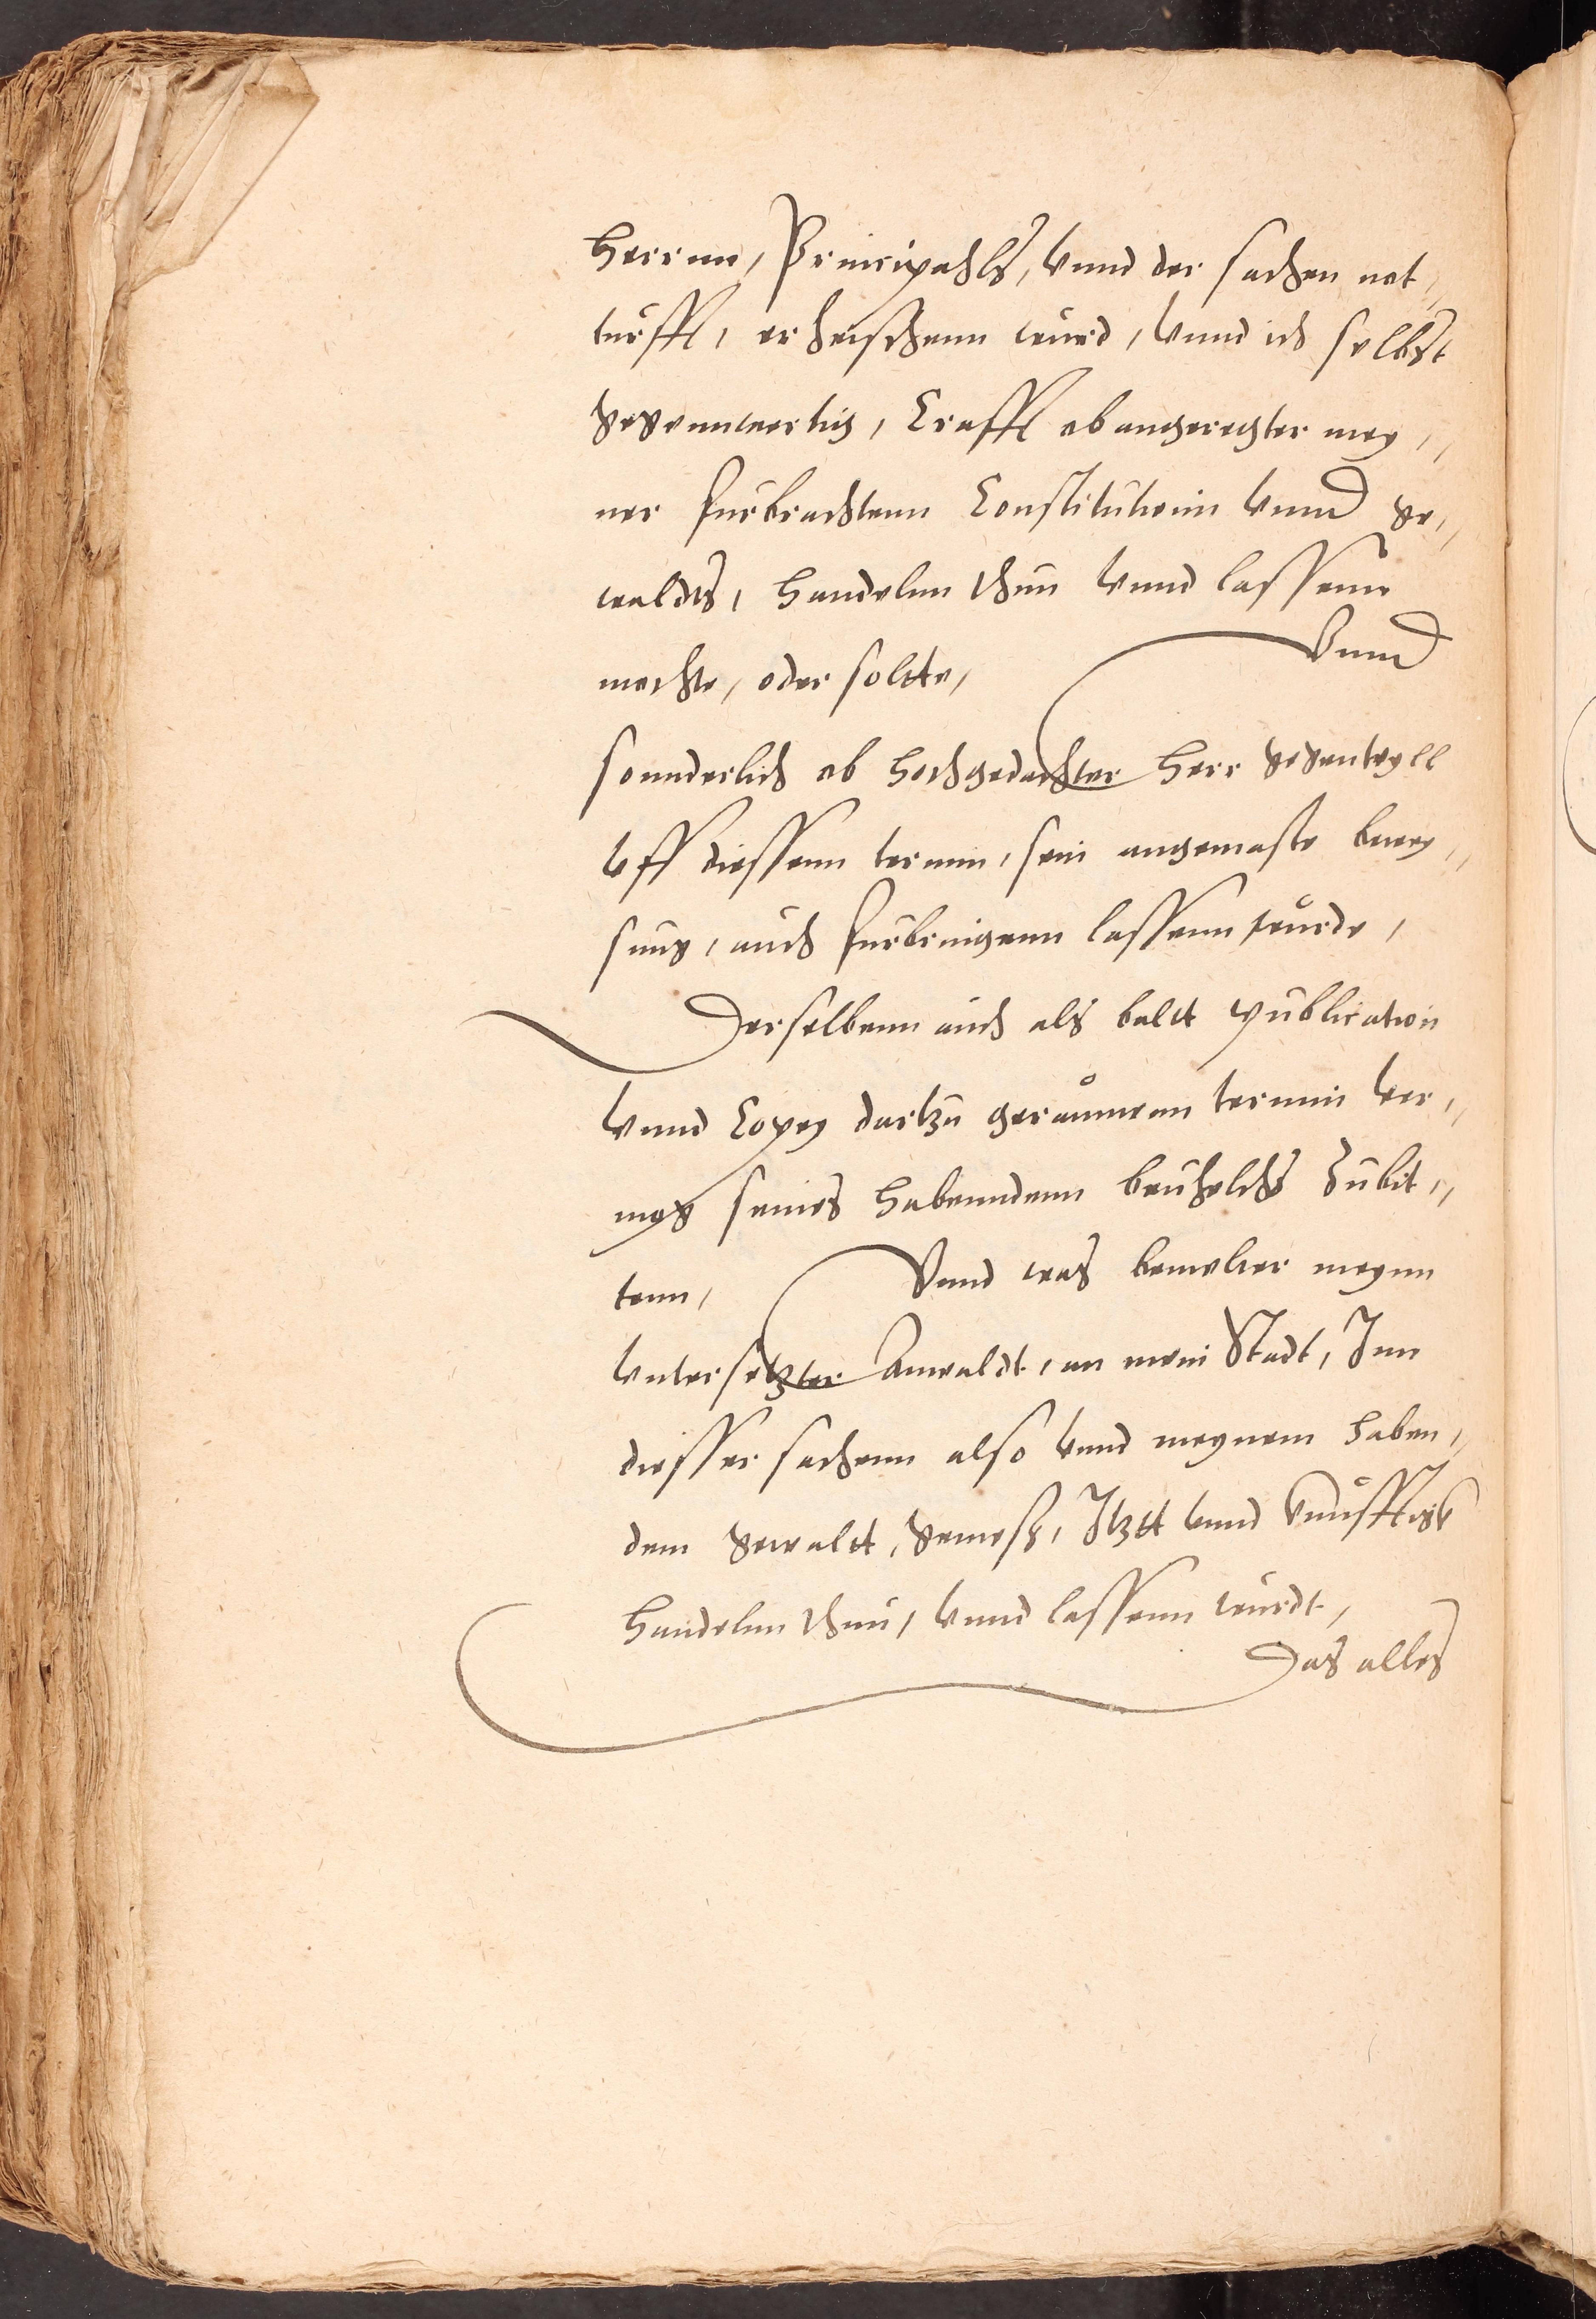 Herrnn, Principahls, vnnd der sachen not-
turfft, erheischenn wurd, vnnd ich selbst
gegennwertig, Crafft obangeregter mey-
ner furbrachtenn Constitutionn vnnd ge-
waldts, handelnn thun vnnd lassenn
mochte, oder soltte, Vnnd
sonnderlich ob hochgedachter Herr gegenteyll
vff diessenn termin, sein angemaste bewey-
sung, auch furbringenn lassenn wurde,
Derselbenn auch als baltt publication
vnnd Copey dartzu geraumenn termin ver-
mog seines habenndenn beuhelchs zubit-
tenn, Vnnd was bemelter meynn
vntersetzter Anwaldt, an mein Stadt, Inn
diesser sachenn also vnnd meynem haben-
dem gewaltt, gemeß, Itztt vnnd kunfftigk
handelnn thun, vnnd lassenn wurdt,
Das alles